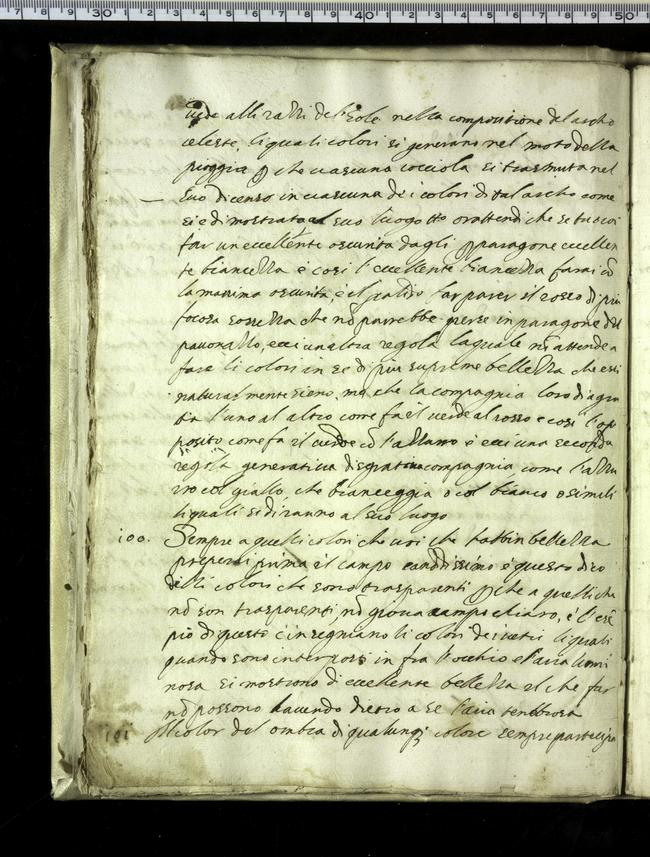 vede alli razzi del sole nella compositione del archo
celeste, li quali colori si generano nel moto della
pioggia p che ciascuna gocciola si trasmuta nel
suo dicenso in ciascuno de i colori di tal archo come
si è dimostrato al suo luogo hor attendi che se tu voi
far un eccellente oscurita dagli p paragone eccellen
te bianchezza e cosi l'eccellente bianchezza farai cō
la massima oscurita, e'l pallido far parer il rosso di piu
focosa rossezza che nō parrebbe per se in paragone del
pauonazzo, ecci un altra regola la quale nō attende a
fare li colori in se di piu suprema bellezza che essi
naturalmente sieno, ma che la compagnia loro dia gra
tia l'uno al altro come fa el verde al rosso e cosi l'op
posito come fa il verde cō l'azzurro e ecci una seconda
regola generatiua di sgratia compagnia come l'azzu
rro col giallo, che biancheggia o col bianco o simili
li quali si diranno al suo luogo
100. Sempre a quelli colori che voi che habbin bellezza
preperai prima il campo candidissimo e questo dico
delli colori che sono trasparenti p che a quelli che
nō son trasparenti, nō gioua campo chiaro, e l'esē
pio di questo c'insegniano li colori de i vetri li quali
quando sono interposti in fra l'occhio e l'aria lumi
nosa si mostrono di eccellente bellezza il che far
nō possono hauendo dietro a se l'aria tenebrosa
101 Il color del ombra di qualunq; colore sempre partecipa